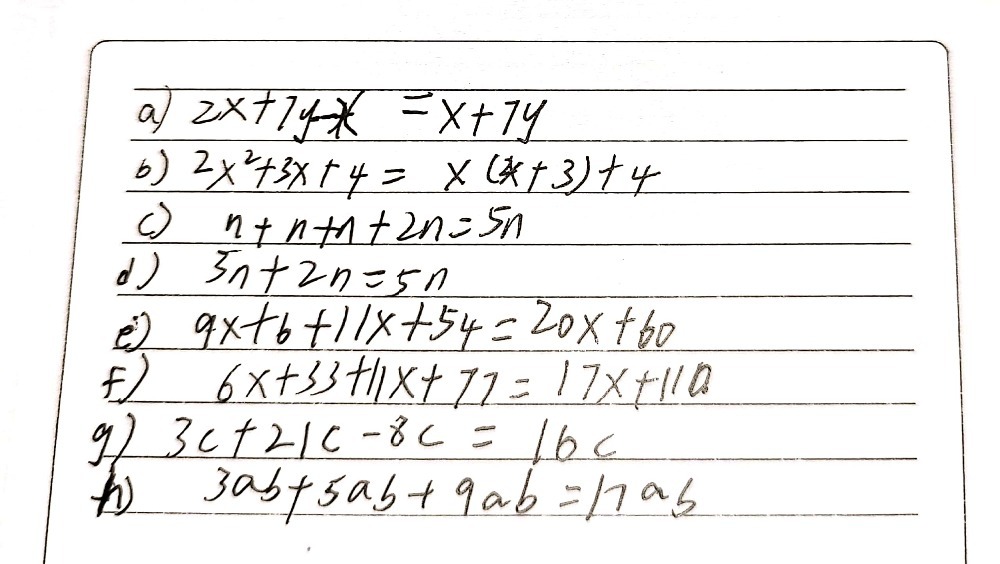 a) 2x+7y-x = x+7y
b) 2x²+3x+4 = x(2x+3)+4
c) n+n+n+2n=5n
d) 3n+2n=5n
e) 9x+6+11x+54=20x+60
f) 6x+33+11x+77=17x+110
g) 3c+21c-8c = 16c
h) 3ab+5ab+9ab=17ab